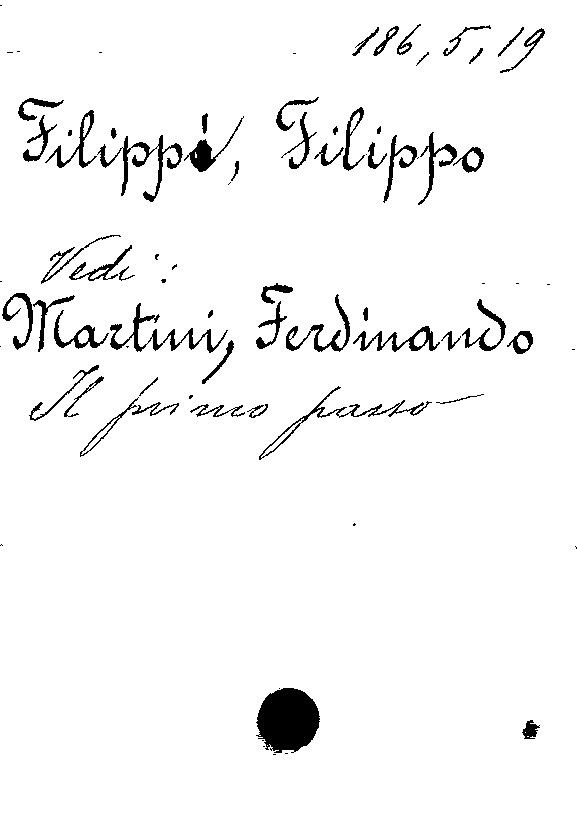 186, 5, 19
Filippi, Filippo
Vedi:
Martini, Ferdinando
Il primo passo